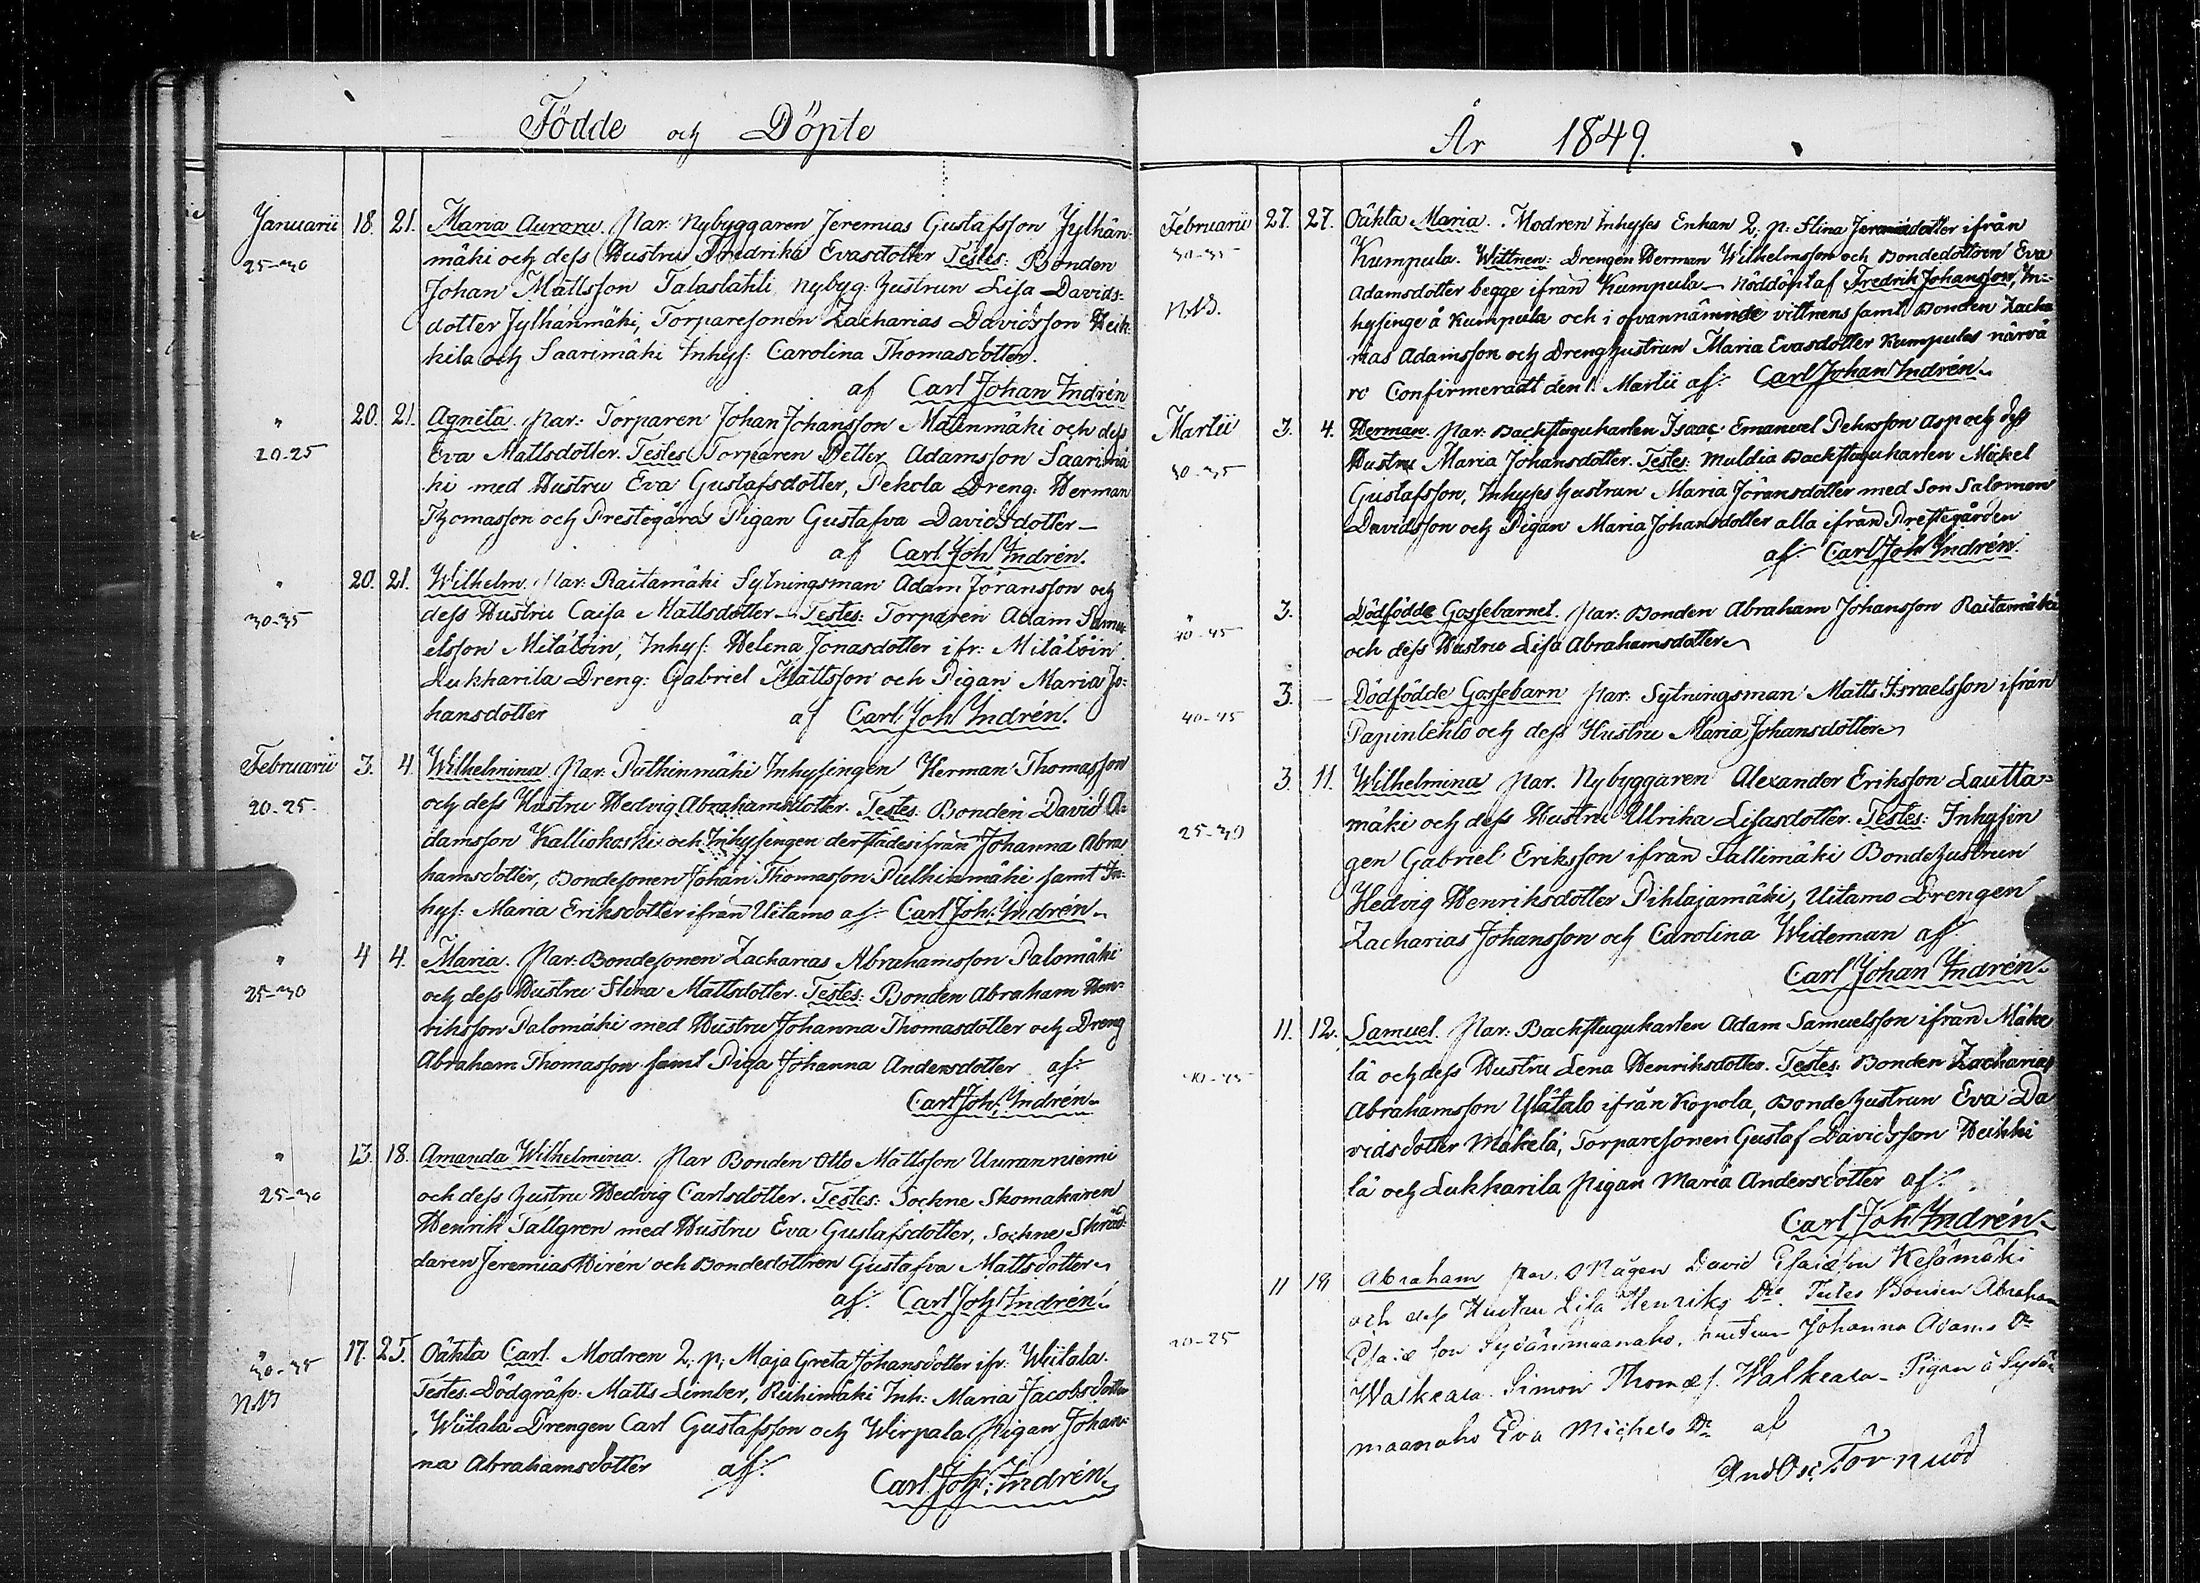 Födde och Döpte
Januarii 18. 21. Maria Aurora. Par: Nybyggaren Jeremias Gustafsson Jylhän-
25-30 mäki och dess Hustru Fredrika Evasdotter Testes: Bonden
Johan Mattsson Talaslahti, nybyg: hustrun Lisa Davids-
dotter Jylhänmäki, Torparesonen Zacharias Davidsson Heik-
kila och Saarimäki Inhys: Carolina Thomasdotter.
af Carl Johan Indrén
" 20. 21. Agneta. Par: Torparen Johan Johansson Matinmäki och dess
20-25 Eva Mattsdotter. Testes Torparen Petter Adamsson Saarimä
ki med Hustru Eva Gustafsdotter, Pekola Dreng: Herman
Thomasson och Prestegårds Pigan Gustafva Davidsdotter-
af Carl Joh Indrén.
" 20. 21. Wilhelm. Par: Raitamäki Sytningsman Adam Jöransson och
30-35 dess Hustru Caisa Mattsdotter- Testes: Torparen Adam Samu-
elsson Mitätöin, Inhys: Helena Jonasdotter ifr: Mitätöin
Lukkarila Dreng: Gabriel Mattsson och Pigan Maria Jo-
hansdotter af Carl: Joh Indrén.
Februarii 3. 4. Wilhelmina Par: Pulkinmäki Inhysingen Herman Thomasson
20-25. och dess Hustru Hedvig Abrahamsdotter. Testes: Bonden David A-
damsson Kalliokoski och Inhysengen derstädes ifrån Johanna Abra
hamsdotter, Bondesonen Johan Thomasson Pulkinmäki samt In-
hys: Maria Eriksdotter ifrån Uitamo af: Carl Joh: Indrén
" 4 4. Maria. Par: Bondesonen Zacharias Abrahamsson Palomäki
25-30 och dess Hustru Stina Mattsdotter. Testes: Bonden Abraham Hen-
riksson Palomäki med Hustru Johanna Thomasdotter och Dreng
Abraham Thomasson samt Piga Johanna Andersdotter af:
Carl Joh: Indrén
" 13. 18. Amanda Wilhelmina. Par Bonden Otto Mattsson Uuranniemi
25-30 och dess hustru Hedvig Carlsdotter. Testes: Sockne Skomakaren
Henrik Tallgren med Hustru Eva Gustafsdotter, Sockne Skräd-
daren Jeremias Hirén och Bondedottren Gustafva Mattsdotter
af: Carl Joh Indrén
" 17. 25. Oäkta Carl. Modren 2: p: Maja Greta Johansdotter ifr: Wiitala.
30-35 Testes: Dödgräfv: Matts Limber, Riihimäki Inh: Maria Jacobsdotter
NB Wiitala Drengen Carl Gustafsson och Wirpala Pigan Johan-
na Abrahamsdotter af: Carl Joh: Indrén
År 1849.
Februarii 27. 27. Oäkta Maria. Modren Inhyses Enkan 2: p: Stina Jeremiædotter ifrån
30-35 Kumpula. Wittnen: Drengen Herman Wilhelmsson och Bondedottren Eva
Adamsdotter begge ifrån Kumpula- Nöddöpt af Fredrik Johansson, In-
N.B. hysinge å Kumpula och i ofvannämnde vittnens samt Bonden Zacha
rias Adamsson och Dreng hustrun Maria Evasdotter Kumpulas närva
ro Confirmeradt den 1. Martii af: Carl Johan Indrén
Martii 3. 4. Herman. Par: Backstugukarlen Isaac Emanuel Pehrsson Asp och dess
30-35 Hustru Maria Johansdotter. Testes: Muldia Backstugukarlen Mickel
Gustafsson, Inhyses hustrun Maria Jöransdotter med Son Salomon
Davidsson och Pigan Maria Johansdotter alla ifrån Prestegården
af Carl Joh Indrén.
" 3. Dödfödde Gossebarnet. Par: Bonden Abraham Johansson Raitamäki
40-45 och dess Hustru Lisa Abrahamsdotter
3. - Dödfödde Gossebarn Par: Sytningsman Matts Israelsson ifrån
40-45 Papinlehto och dess Hustru Maria Johansdotter
3. 11. Wilhelmina Par. Nybyggaren Alexander Eriksson Lautta-
mäki och dess Hustru Ulrika Lisasdotter. Testes: Inhysin
25-30 gen Gabriel Eriksson ifrån Tallimäki Bondehustrun
Hedvig Henriksdotter Pihlajamäki, Uitamo Drengen
Zacharias Johansson och Carolina Wideman af:
Carl Johan Indrén
11. 12. Samuel. Par: Backstugukarlen Adam Samuelsson ifrån Mäke
lä och dess Hustru Lena Henriksdotter. Testes: Bonden Zacharias
Abrahamsson Ylätalo ifrån Kopola, Bonde hustrun Eva Da
vidsdotter Mäkelä, Torparesonen Gustaf Davidsson Heikki
lä och Lukkarila Pigan Maria Andersdotter af:
Carl Joh Indrén
11 18 Abraham Par. Mågen David Esaiæson Kesämäki
och dess Hustru Lisa Henriks Dr. Testes Bonden Abraham
20-25 Esaiæ son Sydänmaanaho, hustrun Johanna Adams Dr
Walkeala. Simon Thomæs. Walkeala- Pigan å Sydän
maanaho Eva Michels Dr af
And Os: Törnudd